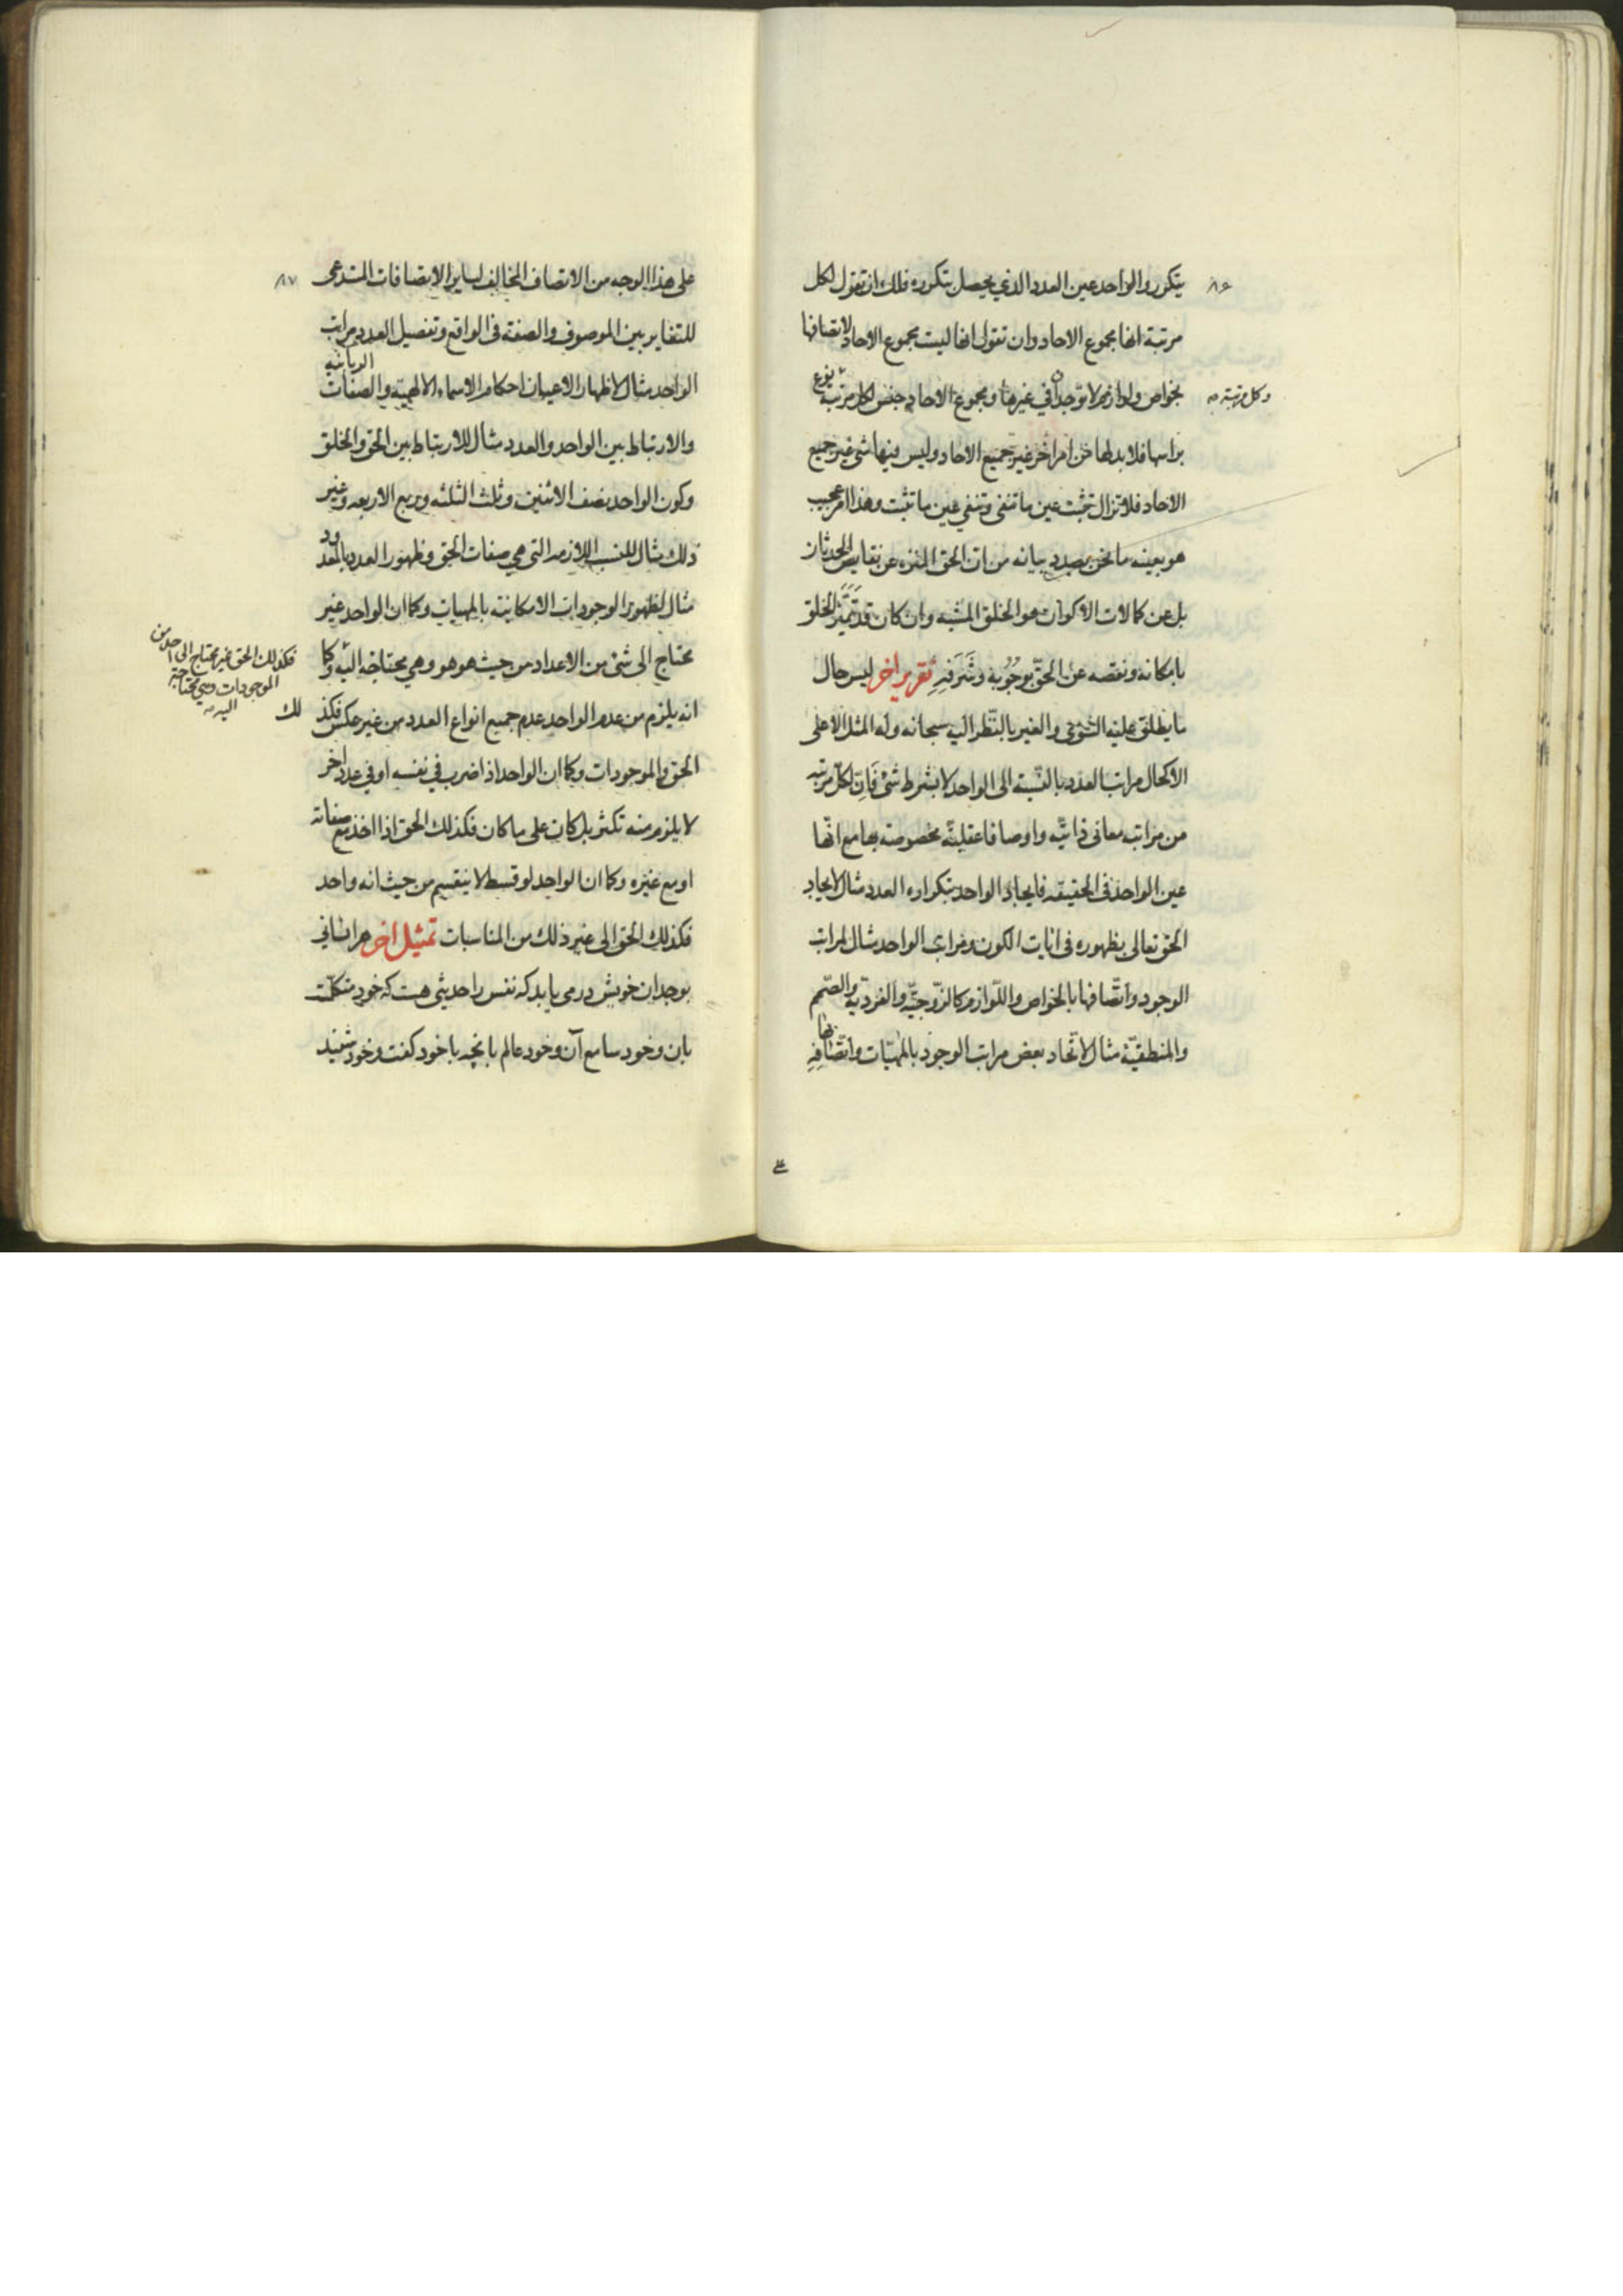 ۸۶
يتكرر والواحد عين العدد الذي يحصل بتكرره فلك ان تقول لكل
مرتبة انها مجموع الاحاد وان تقول انها ليست مجموع الاحاد لاتصافها
بخواص ولوازم لا توجدان في غيرها ومجموع الاحاد جنس لكل مرتبة
نوع
وكل مرتبة
براسها فلا بد لها من امر اخر غير جميع الاحاد وليس فيها شئ غير جميع
الاحاد فلا تزال تثبت عين ما تنفى وتنفي عين ما تثبت وهذا امر عجيب
هو بعينه ما نحن بصدد بيانه من ان الحق المنزه عن نقايص الحدثان
بل عن كمالات الاكوان هو الخلق المشبه وان كان قد تَمَيَّز الخلق
بامكانه ونقصه عن الحقّ بوُجُوبه وشَرَفِهِ تقرير اخر ليس حال
ما يطلق عليه السّوى والغير بالنّظر اليه سبحانه وله المثل الاعلى
الا كحال مراتب العدد بالنّسبة الى الواحد لا بشرط شئ فَاِنّ لكلّ مرتبه
من مراتبه معانى ذاتيّه واوصافا عقليّه مخصوصة بها مع انّها
عين الواحد فى الحقيقه فايجاد الواحد بتكراره العدد مثال لايجاد
الحق تعالى بظهوره فى ايات الكون ومراتب الواحد مثال لمراتب
الوجود واتّصافها بالخواص واللّوازم كالزّوجيّه والفرديّه والصّمم
والمنطقيّة مثال لاتّحاد بعض مراتب الوجود بالمهيّات واتّصافِهِ
بها
على
۸۷
على هذا الوجه من الاتصاف المخالف لساير الاتصافات المستدعى
للتغاير بين الموصوف والصفة فى الواقع وتفصيل العدد مراتب
الواحد مثال لاظهار الاعيان احكام الاسماء الالهيّة والصفات
الربانيه
والارتباط بين الواحد والعدد مثال للارتباط بين الحق والخلق
وكون الواحد نصف الاثنين وثلث الثلثه وربع الاربعه وغير
ذلك مثال للنسب اللازمه التى هي صفات الحق وظهور العدد بالمعدود
مثال لظهور الوجودات الامكانية بالمهيات وكما ان الواحد غير
محتاج الى شئ من الاعداد من حيث هو هو وهي محتاجة اليه وكما
فكذلك الحق غير محتاج الى احد من
الموجودات وهي محتاجة
اليه
انه يلزم من عدم الواحد عدم جميع انواع العدد من غير عكس فكذ
لك
الحق والموجودات وكما ان الواحد اذا ضرب في نفسه او في عدد اخر
لا يلزم منه تكثر بل كان على ما كان فكذلك الحق اذا اخذ مع صفاته
او مع غيره وكما ان الواحد لو قسط لا ينقسم من حيث انه واحد
فكذلك الحق الى غير ذلك من المناسبات تمثيل اخر هر انسانى
بوجدان خويش درمى يابد كه نفس را حديثى هست كه خود متكلمست
بان وخود سامع آن وخود عالم بانچه با خود كفت وخود شنيد